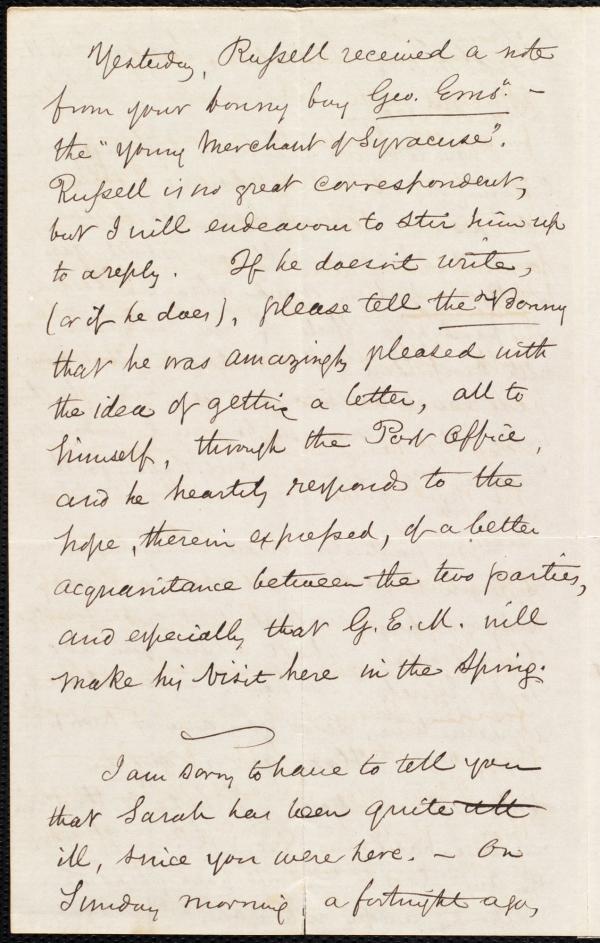 Yesterday, Russell received a note
from your bonny boy Geo. Ems". -
the "young Merchant of Syracuse".
Russell is no great correspondent,
but I will endeavour to stir him up
to a reply. If he doesn't write,
(or if he does), please tell the "Bonny
that he was amazingly pleased with
the idea of getting a letter, all to
himself, through the Post Office,
and he heartily responds to the
hope, therein expressed, of a better
acquanitance between the two parties,
and especially that G. E. M. will
make his visit here in the Spring.
I am sorry to have to tell you
that Sarah has been quite
ill, since you were here. - On
Sunday morning, a fortnight ago,